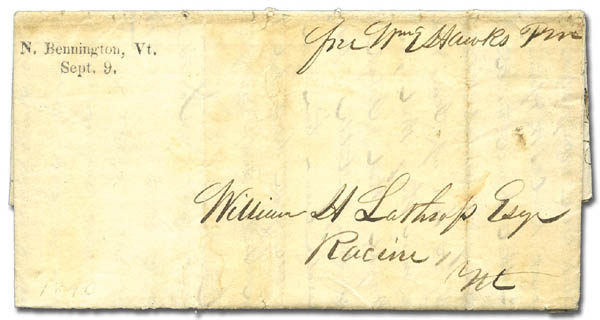 N. Bennington, Vt.
Sept. 9.
free Wm E Hawks P M
William H Lathrop Esqr
Racine
1840